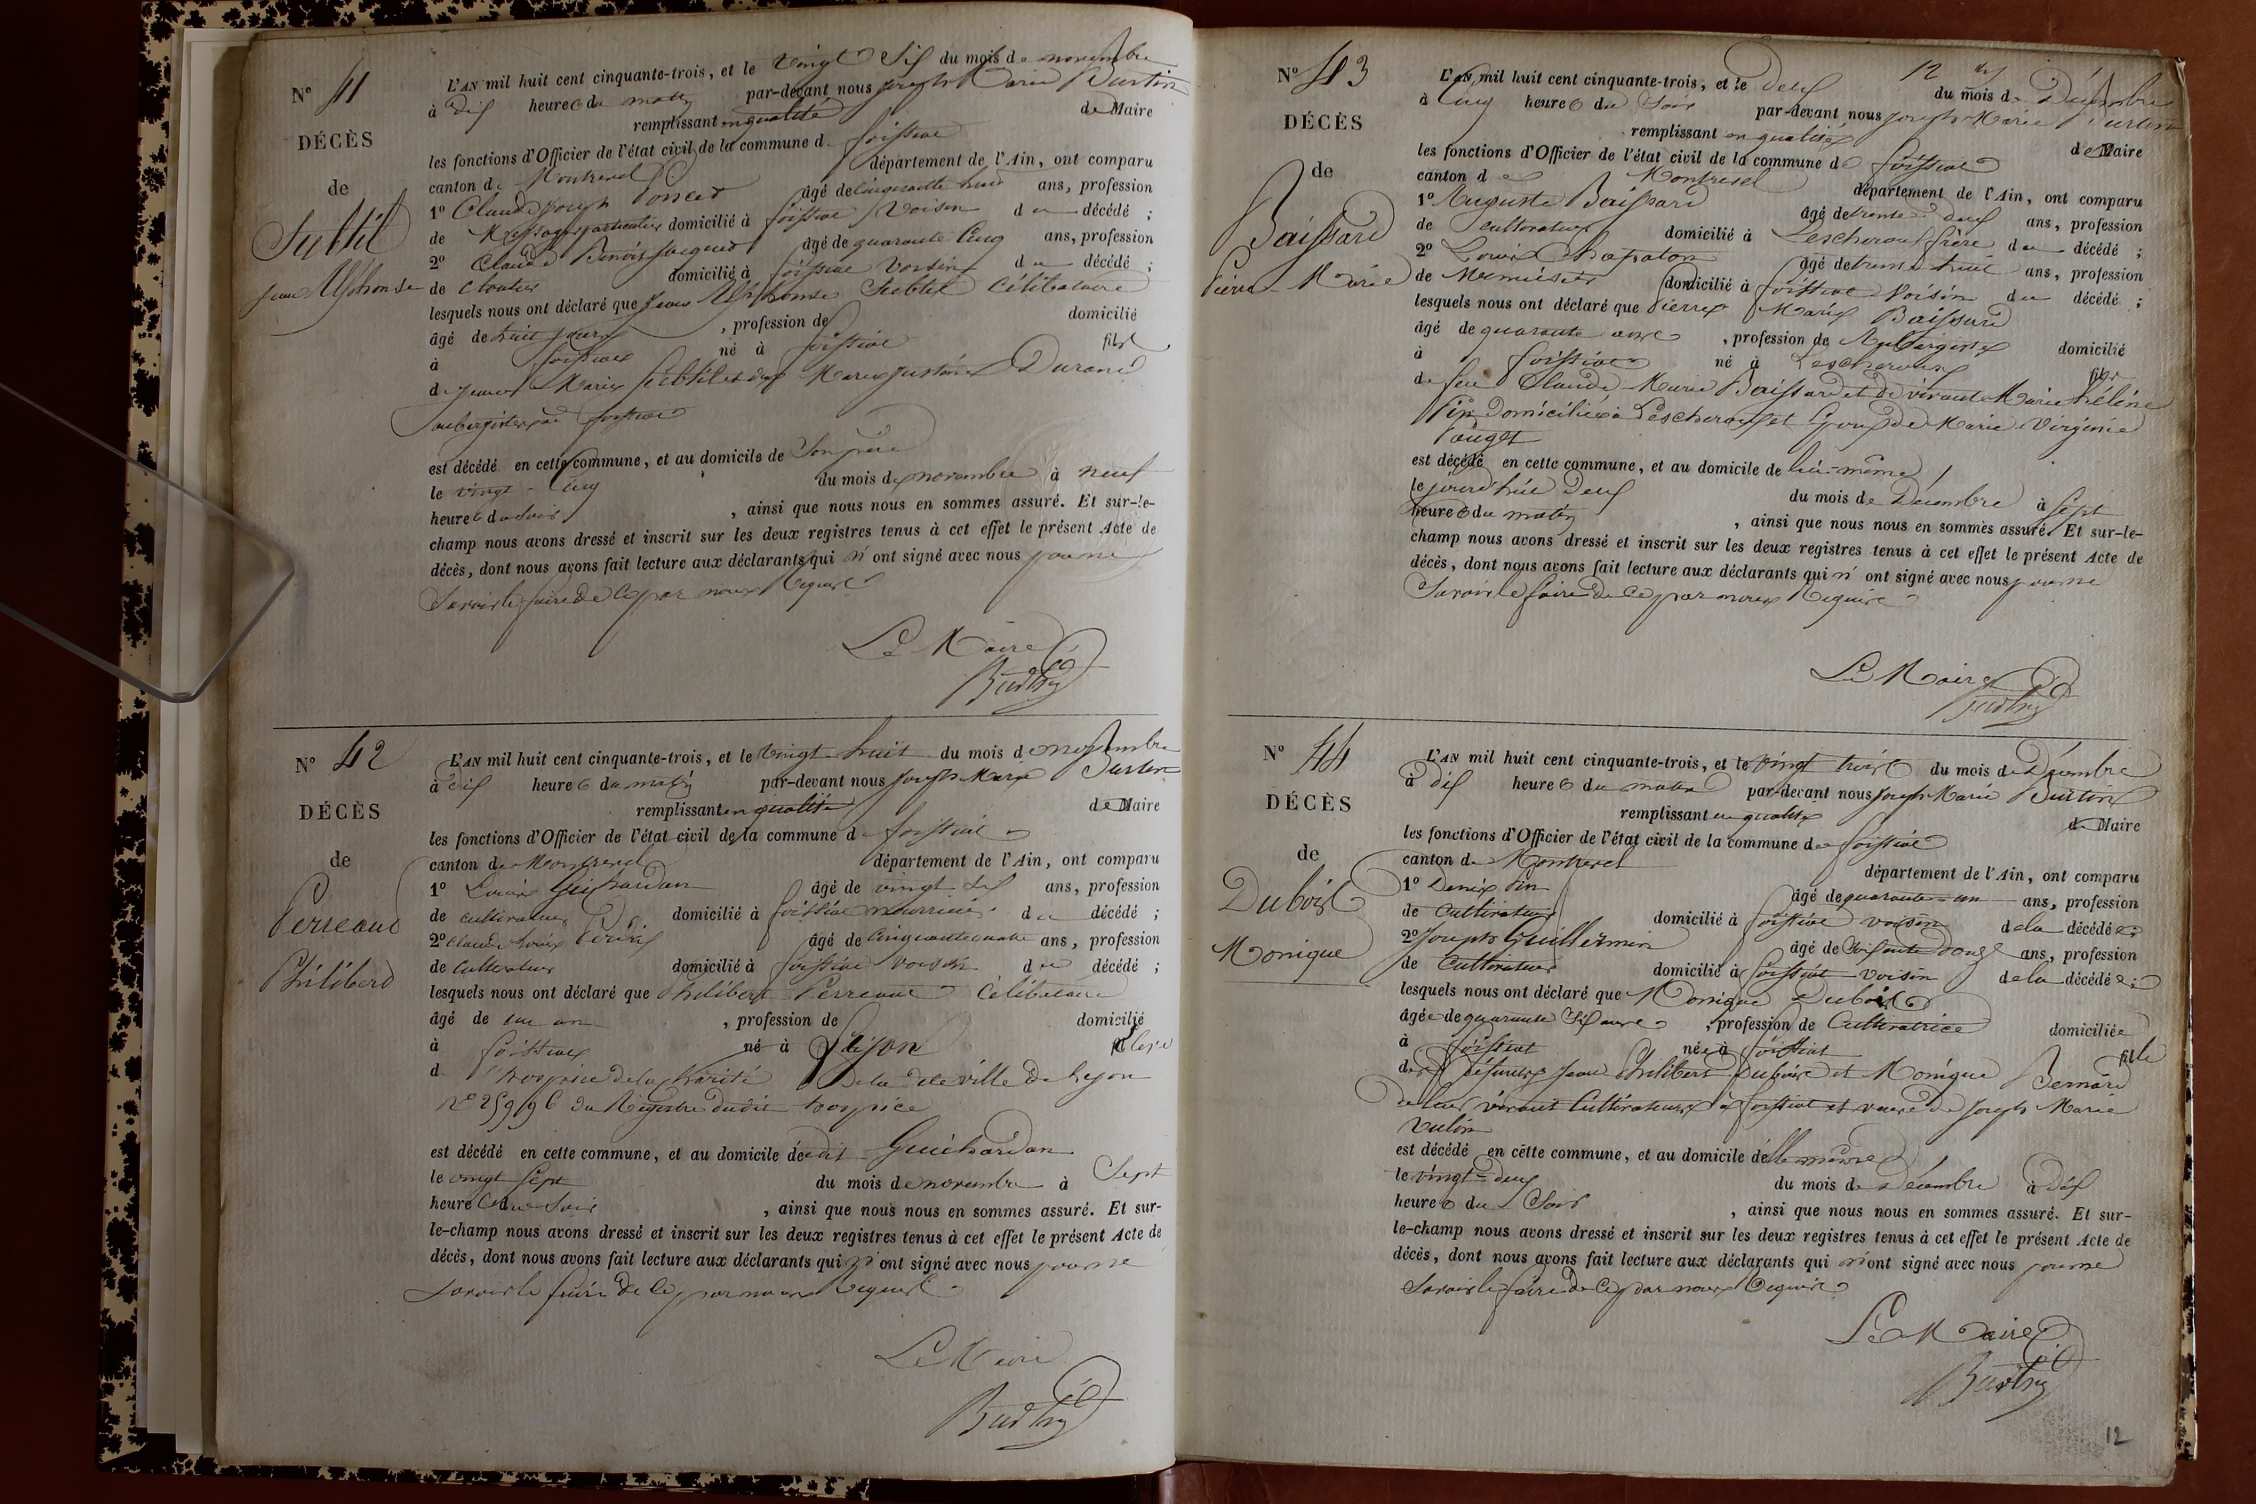 N° 41
DÉCÈS
de
Subtil
Jean Alphonse
L'AN mil huit cent cinquante-trois, et le vingt Six du mois de novembre
à dix heures du matin par-devant nous Joseph Marie Burtin
remplissant en qualité de Maire
les fonctions d'Officier de l'état civil de la commune de foissiat
canton de Montrevel département de l'Ain, ont comparu
1° Claude Joseph Poncet âgé de cinquante huit ans, profession
de Messager particulier domicilié à foissiat Voisin du décédé ;
2° Claude Benoit Jacquet âgé de quarante Cinq ans, profession
de Cloutier domicilié à foissiat Voisin du décédé ;
lesquels nous ont déclaré que Jean Alphonse Subtil Célibataire
âgé de huit jours , profession de domicilié
à foissiat né à foissiat fils
de Jean Marie Subtil et de Marie Justine Durand
aubergistes à foissiat
est décédé en cette commune, et au domicile de Son père
le vingt-Cinq du mois de novembre à neuf
heures du Soir , ainsi que nous nous en sommes assuré. Et sur-le-
champ nous avons dressé et inscrit sur les deux registres tenus à cet effet le présent Acte de
décès, dont nous avons fait lecture aux déclarants qui n'ont signé avec nous pour ne
Savoir le faire de ce par nous Requis
Le Maire
Burtin
N° 42
DÉCÈS
de
Perreaud
Philibert
L'AN mil huit cent cinquante-trois, et le vingt huit du mois de novembre
à dix heures du matin par-devant nous Joseph Marie Burtin
remplissant en qualité de Maire
les fonctions d'Officier de l'état civil de la commune de foissiat
canton de Montrevel département de l'Ain, ont comparu
1° Louis Guichardan âgé de vingt six ans, profession
de cultivateur domicilié à foissiat nourricier du décédé ;
2° Claude Louis âgé de Cinquante quatre ans, profession
de Cultivateur domicilié à foissiat voisin du décédé ;
lesquels nous ont déclaré que Philibert Perreaud Célibataire
âgé de un an , profession de domicilié
à foissiat né à Lyon
de l'hospice de la Charité de la dite ville de Lyon
N° 25996 du Registre dudit hospice
est décédé en cette commune, et au domicile dédit Guichardan
le vingt Sept du mois de novembre à Sept
heures du Soir , ainsi que nous nous en sommes assuré. Et sur-
le-champ nous avons dressé et inscrit sur les deux registres tenus à cet effet le présent Acte de
décès, dont nous avons fait lecture aux déclarants qui n'ont signé avec nous pour ne
savoir le faire de ce par nous Requis
Le Maire
Burtin
12 Xbre
N° 43
DÉCÈS
de
Baissard
Pierre Marie
L'AN mil huit cent cinquante-trois, et le Deux du mois de Décembre
à Cinq heures du Soir par-devant nous Joseph Marie Burtin
remplissant en qualité de Maire
les fonctions d'Officier de l'état civil de la commune de foissiat
canton de Montrevel département de l'Ain, ont comparu
1° Auguste Baissard âgé de trente deux ans, profession
de Cultivateur domicilié à Lescheroux frère du décédé ;
2° Louis Chapaton âgé de trente huit ans, profession
de Menuisier domicilié à foissiat Voisin du décédé ;
lesquels nous ont déclaré que Pierre Marie Baissard
âgé de quarante ans , profession de Aubergiste domicilié
à foissiat né à Lescheroux fils
de feu Claude Marie Baissard et de vivante Marie hélène
Pin domiciliée à Lescheroux et Epoux de Marie Virginie
Pauget
est décédé en cette commune, et au domicile de lui-même
le jourd'hui Deux du mois de Décembre à Sept
heures du matin , ainsi que nous nous en sommes assuré. Et sur-le-
champ nous avons dressé et inscrit sur les deux registres tenus à cet effet le présent Acte de
décès, dont nous avons fait lecture aux déclarants qui n'ont signé avec nous pour ne
Savoir le faire de ce par nous Requis
Le Maire
Burtin
N° 44
DÉCÈS
de
Dubois
Monique
L'AN mil huit cent cinquante-trois, et le vingt trois du mois de Décembre
à dix heures du matin par-devant nous Joseph Marie Burtin
remplissant en qualité de Maire
les fonctions d'Officier de l'état civil de la commune de foissiat
canton de Montrevel département de l'Ain, ont comparu
1° Denis Pin âgé de quarante-un ans, profession
de Cultivateur domicilié à foissiat voisin de la décédée ;
2° Joseph Guillermin âgé de Soixante Douze ans, profession
de Cultivateur domicilié à foissiat voisin de la décédée ;
lesquels nous ont déclaré que Monique Dubois
âgée de quarante Six ans , profession de Cultivatrice domiciliée
à foissiat née à foissiat fille
des défunts Jean Philibert Dubois et Monique Bernard
de leur vivant Cultivateurs à foissiat et veuve de Joseph Marie
Vulin
est décédé en cette commune, et au domicile d'elle même
le vingt-deux du mois de Décembre à Dix
heures du Soir , ainsi que nous nous en sommes assuré. Et sur-
le-champ nous avons dressé et inscrit sur les deux registres tenus à cet effet le présent Acte de
décès, dont nous avons fait lecture aux déclarants qui n'ont signé avec nous pour ne
Savoir le faire de ce par nous Requis
Le Maire
Burtin
12